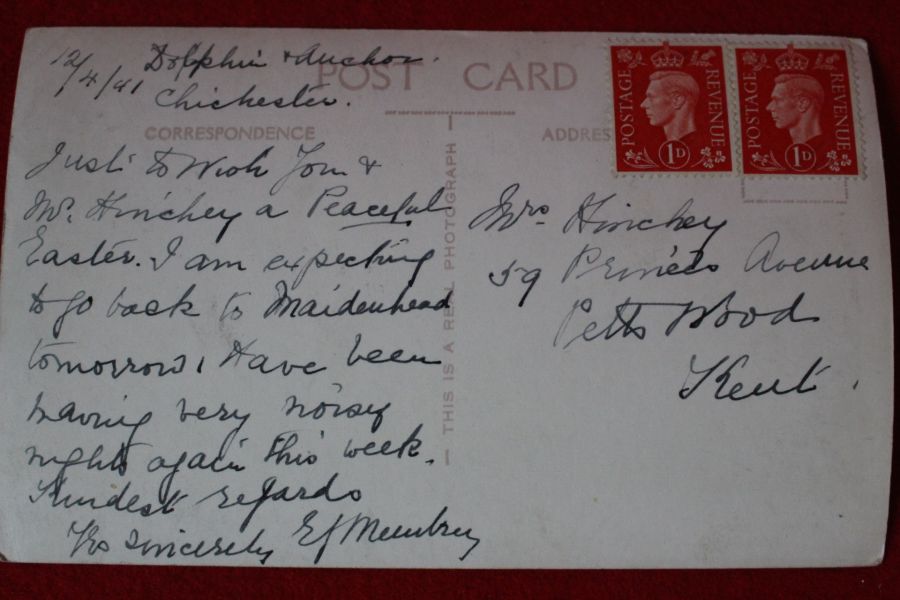 12/4/41 Dolphin & Anchor.
Chichester.
POST CARD
CORRESPONDENCE
ADDRES
Just to Wish You &
Mr. Hinchey a Peaceful
Easter. I am expecting
to go back to Maidenhead
tomorrow. Have been
having very noisy
nights again this week.
Kindest regards
Yrs sincerely EJ Membrey
THIS IS A REAL PHOTOGRAPH
POSTAGE REVENUE
1D
POSTAGE REVENUE
1D
Mrs Hinchey
59 Princes Avenue
Petts Wood
Kent.